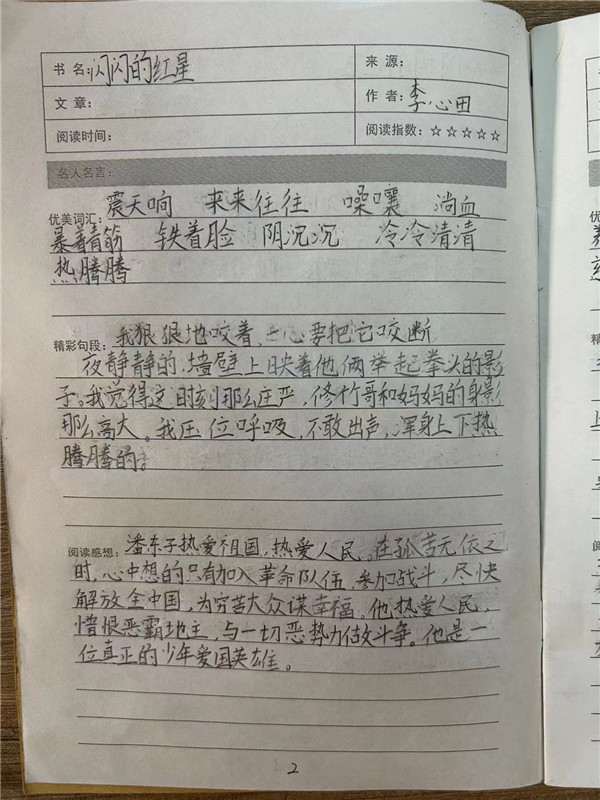 书 名：闪闪的红星
来 源：
文 章：
作 者：李心田
阅读时间：
阅读指数：☆☆☆☆☆
名人名言：
优美词汇：震天响 来来往往 嘈嚷 淌血
暴着青筋 铁着脸 阴沉沉 冷冷清清
热腾腾
精彩句段：我狠狠地咬着，一心要把它咬断
夜静静的，墙壁上映着他俩举起拳头的影
子。我觉得这时刻那么庄严，修竹哥和妈妈的身影
那么高大。我压位呼吸，不敢出声，浑身上下热
腾腾的。
阅读感想：潘东子热爱祖国，热爱人民。在孤苦无依之
时，心中想的只有加入革命队伍，参加战斗，尽快
解放全中国，为穷苦大众谋幸福。他热爱人民，
憎恨恶霸地主，与一切恶势力做斗争。他是一
位真正的少年爱国英雄。
2